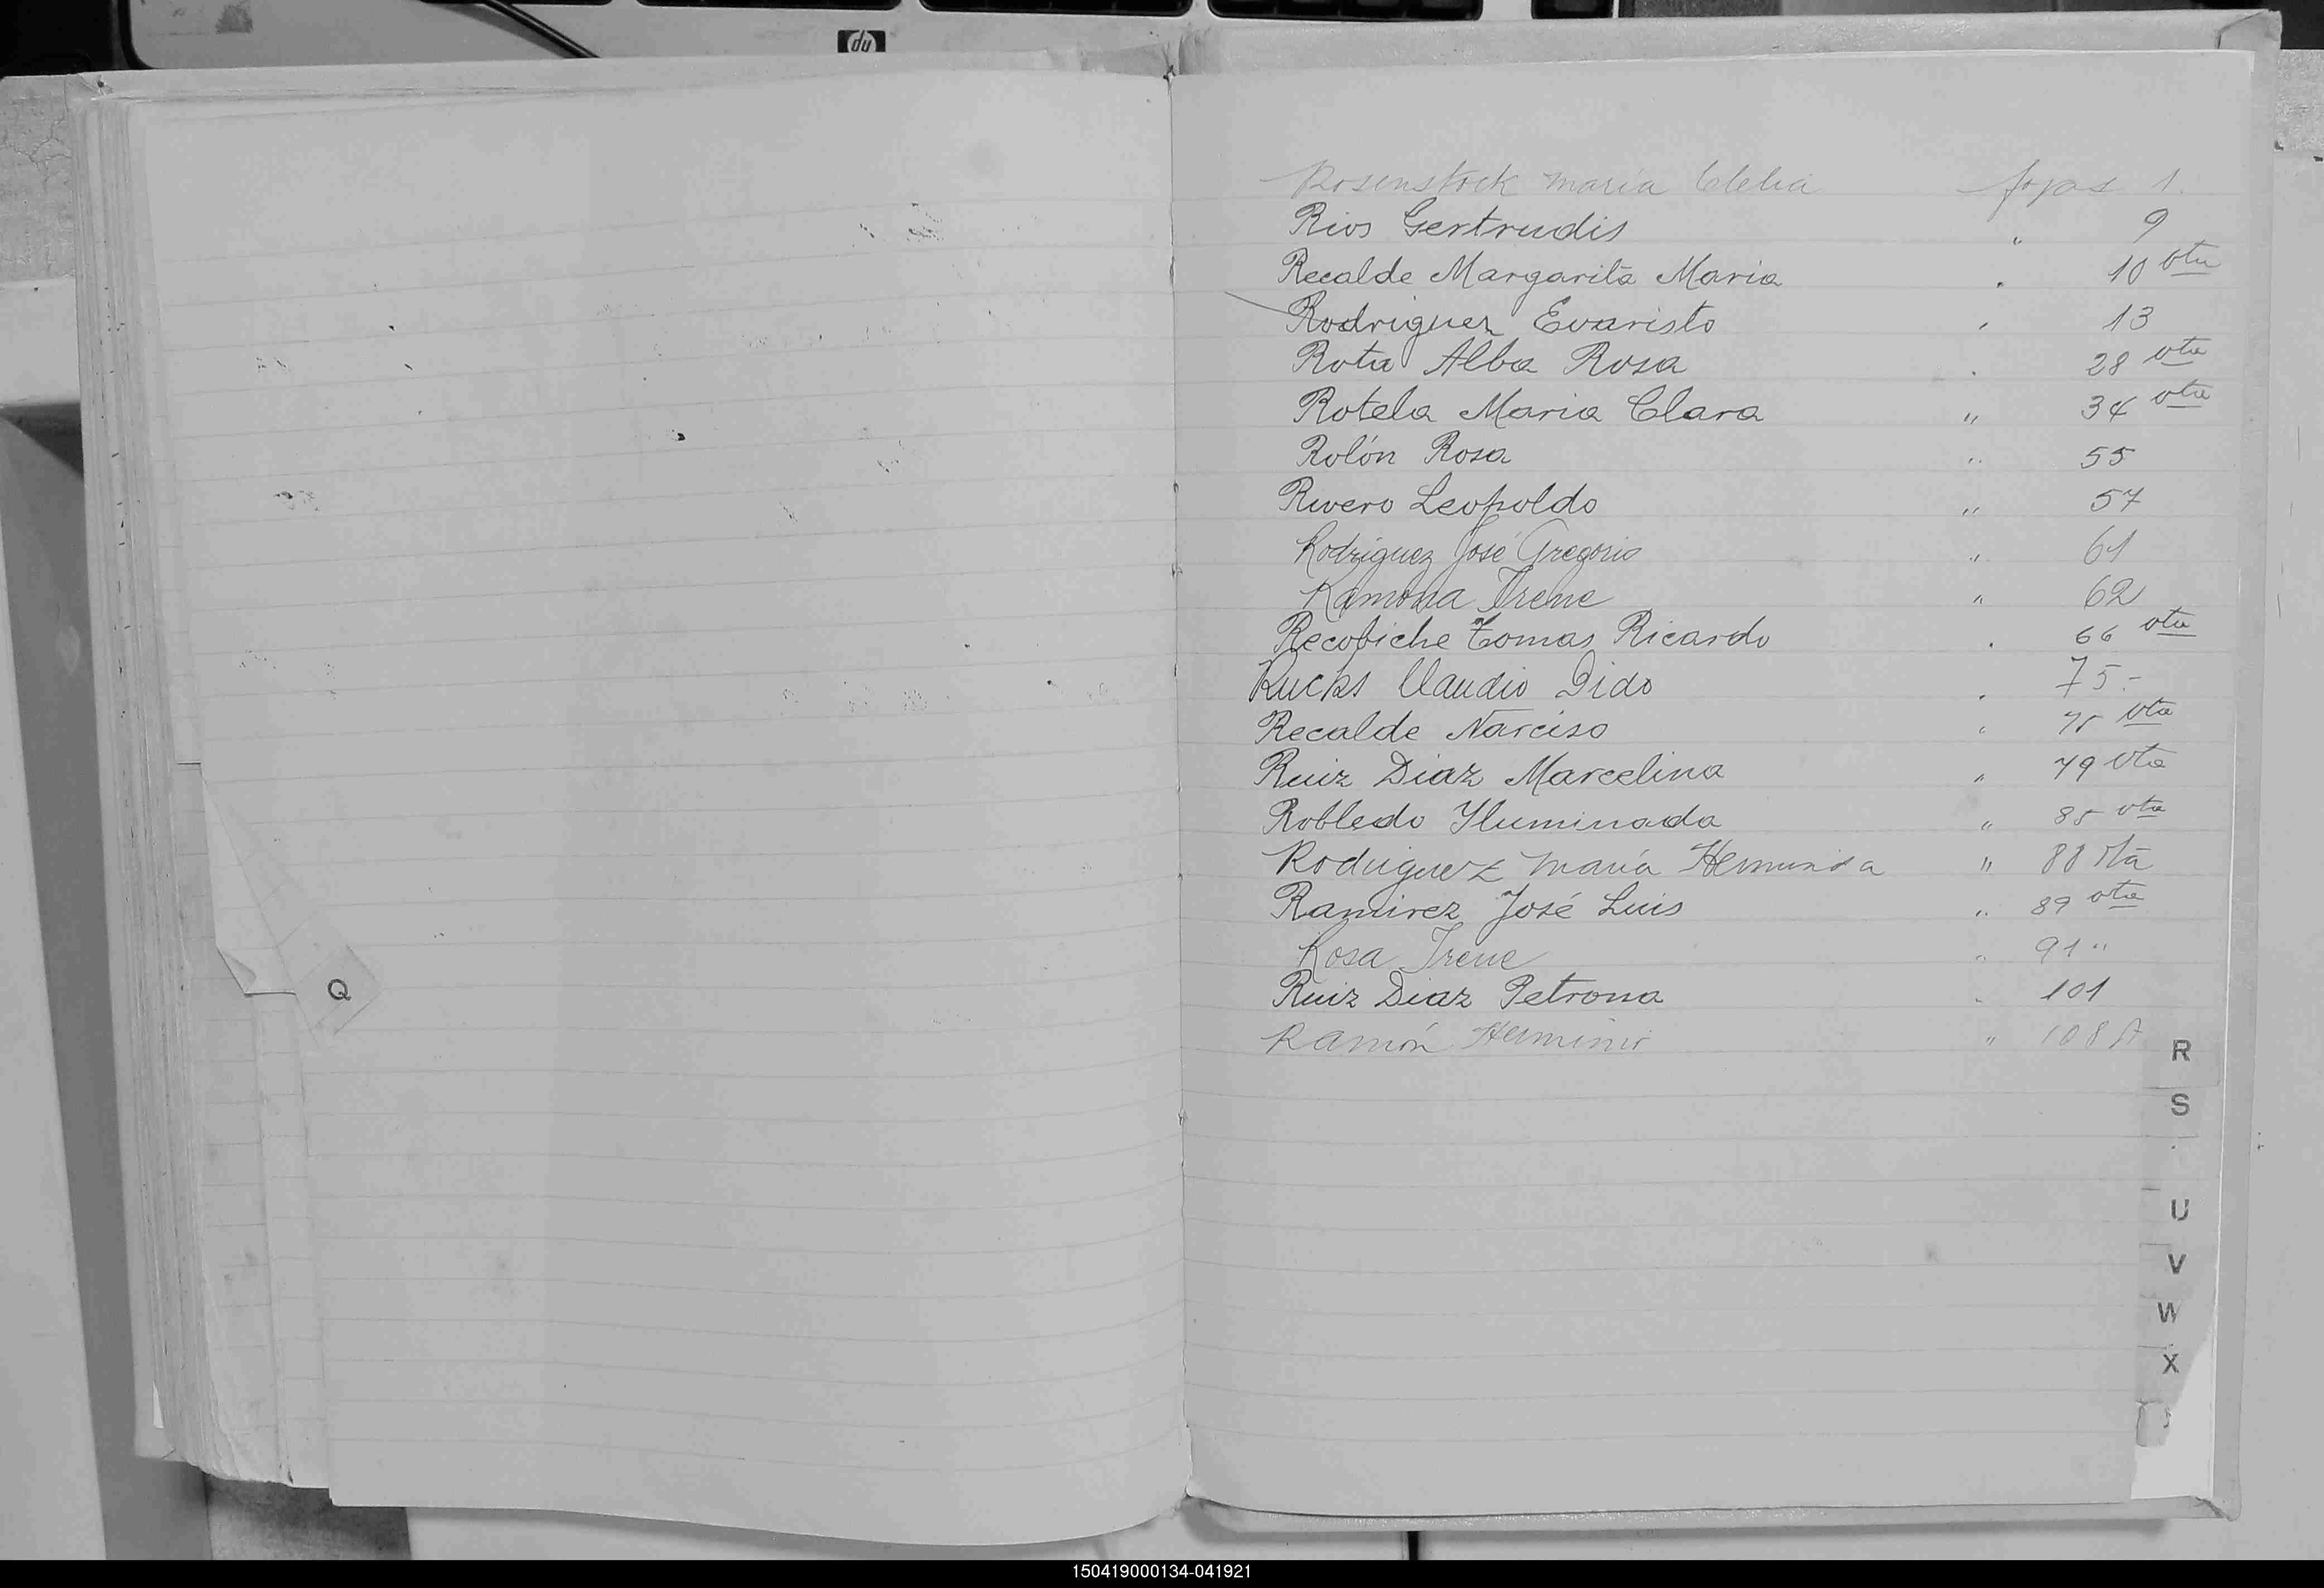 hp
Rosenstock maria Clelia fojas 1.
Rios Gertrudis " 9
Recalde Margarita Maria . 10 vta
Rodriguez Evaristo " 13
Rota Alba Rosa . 28 vta
Rotela Maria Clara " 34 vta
Rolón Rosa " 55
Rivero Leopoldo " 57
Rodriguez José Gregorio " 61
Ramona Irene " 62
Recobiche Tomas Ricardo . 66 vta
Rucks Claudio Dido . 75.-
Recalde Narciso " 75 vta
Ruiz Diaz Marcelina " 79 Vta
Robledo Yluminada " 85 vta
Rodriguez maria Herminia " 88 vta
Ramirez José Luis " 89 vta
Rosa Irene " 91 "
Ruiz Diaz Petrona " 101
Ramón Herminio " 108
Q
R
S
U
V
W
X
150419000134-041921